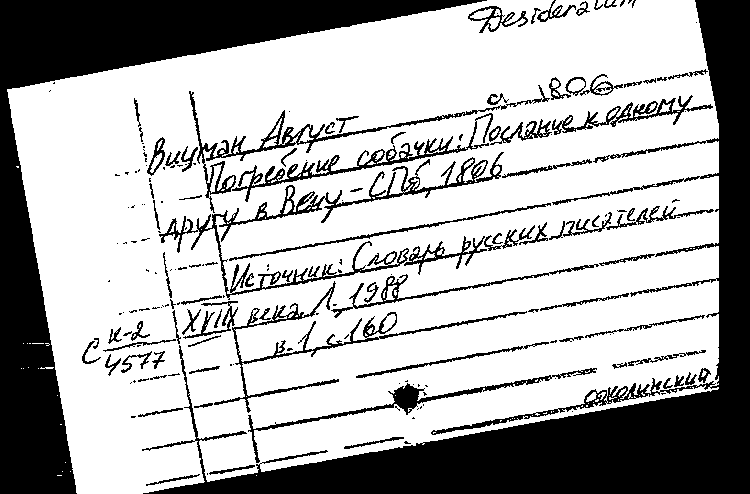 Desideratum
а 1806
Вицман, Август
Погребение собачки: Послание к одному
другу в Вену - СПб, 1806
Источник: Словарь русских писателей
XVIII века. Л., 1988
в. 1, с. 160
С к-2
4577
Соколинский